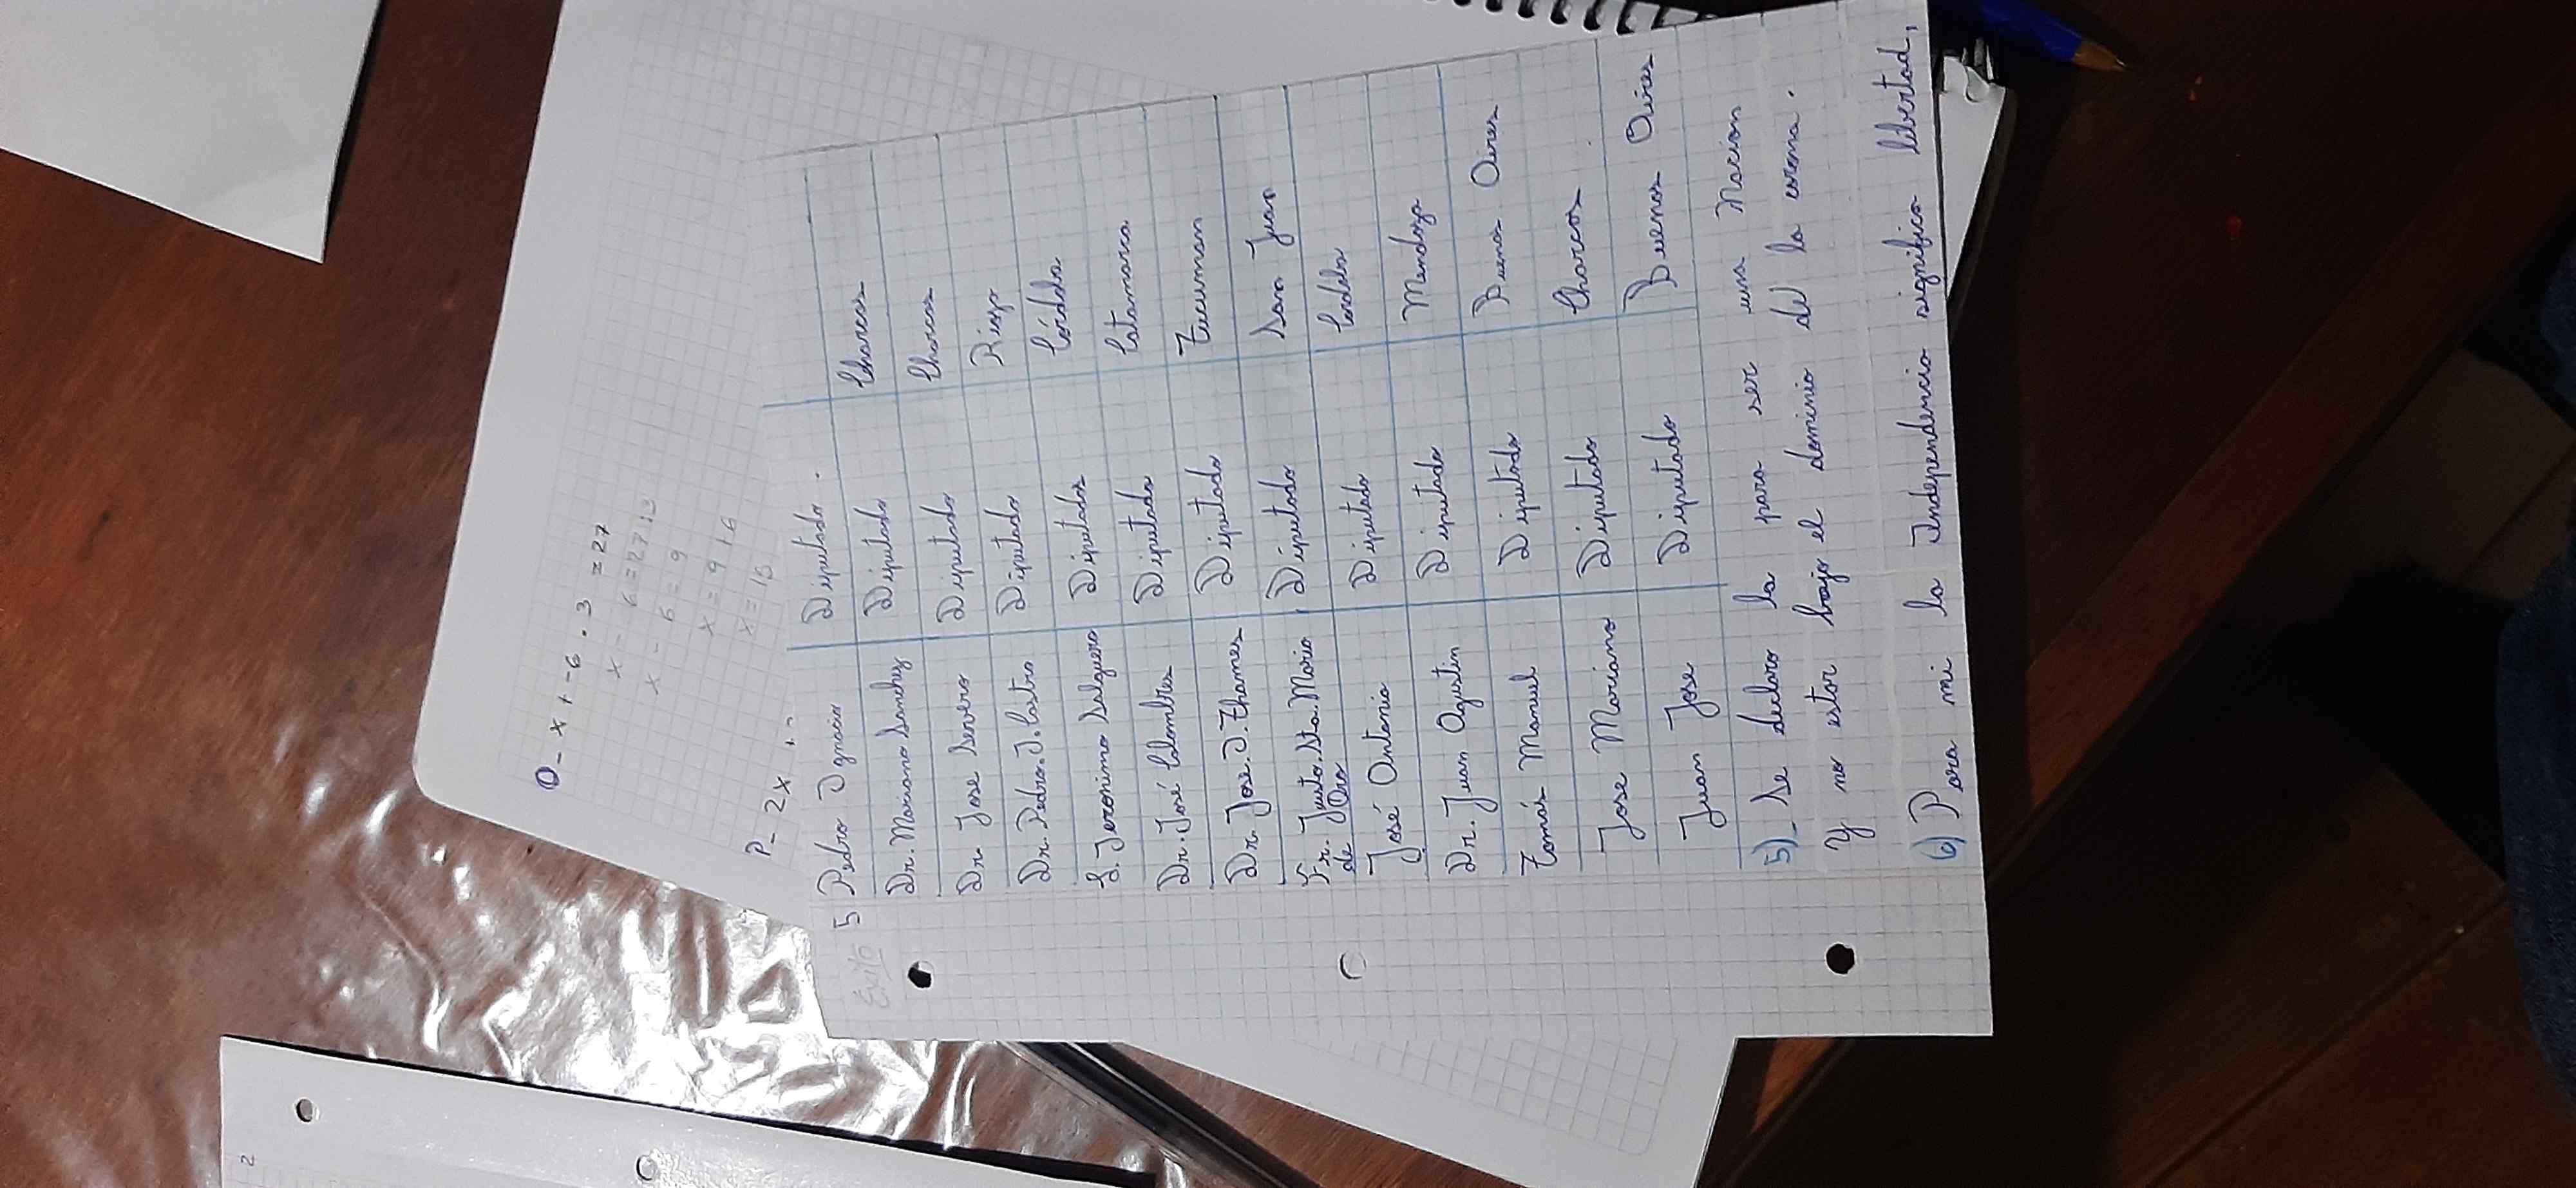 O- x + -6 . 3 = 27
x - 6 = 27 : 3
x - 6 = 9
x = 9 + 6
x = 15
P- 2x
Exito
5 Pedro Ignacio Diputado.
Dr. Mariano Sanchez Diputado Charcas
Dr. Jose Severo Diputado Charcas
Dr. Pedro. I. Castro Diputado Rioja
L. Jeronimo Salguero Diputado Córdoba
Dr. José Colombres Diputado Catamarca
Dr. Jose. I. Thames Diputado Tucuman
Fr. Justo. Sta. Maria de Oro Diputado San Juan
José Antonio Diputado Cordoba
Dr. Juan Agustin Diputado Mendoza
Tomás Manuel Diputado Buenos Aires
Jose Mariano Diputado Charcas
Juan Jose Diputado Buenos Aires
5)_ Se declaro la para ser una Nacion
Y no estar bajo el dominio de la corona.
6) Para mi la Independencia significa libertad,
2